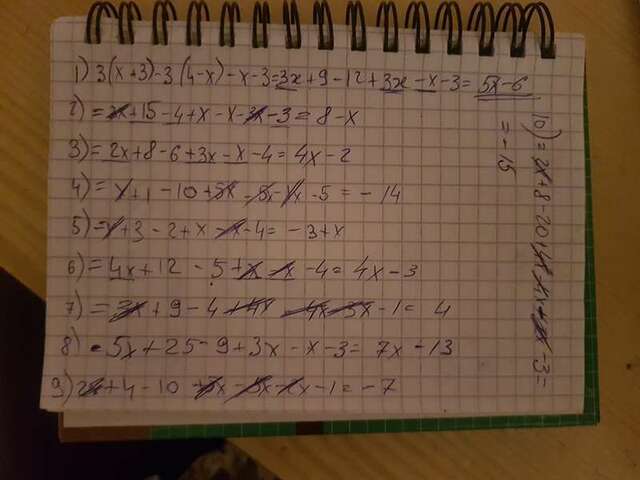 1) 3(x+3)-3(4-x)-x-3=3x+9-12+3x-x-3=5x-6
2) =x+15-4+x-x-x-3=8-x
3) =2x+8-6+3x-x-4=4x-2
4) =x+1-10+5x-5x-x-5=-14
5) =x+3-2+x-x-4=-3+x
6) =4x+12-5+x-x-4=4x-3
7) =3x+9-4+4x-4x-3x-1=4
8) 5x+25-9+3x-x-3=7x-13
9) 2x+4-10+5x-5x-x-1=-7
10) =2x+8-20+4x-4x+2x-3=
=-15